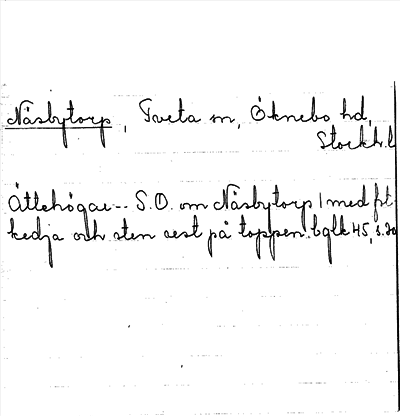 Näsbytorp, Tveta sn, Öknebo hd,
Stockh.l
Ättehögar-- S.O. om Näsbytorp 1 med fot
kedja och sten rest på toppen. bglk 45, s.20